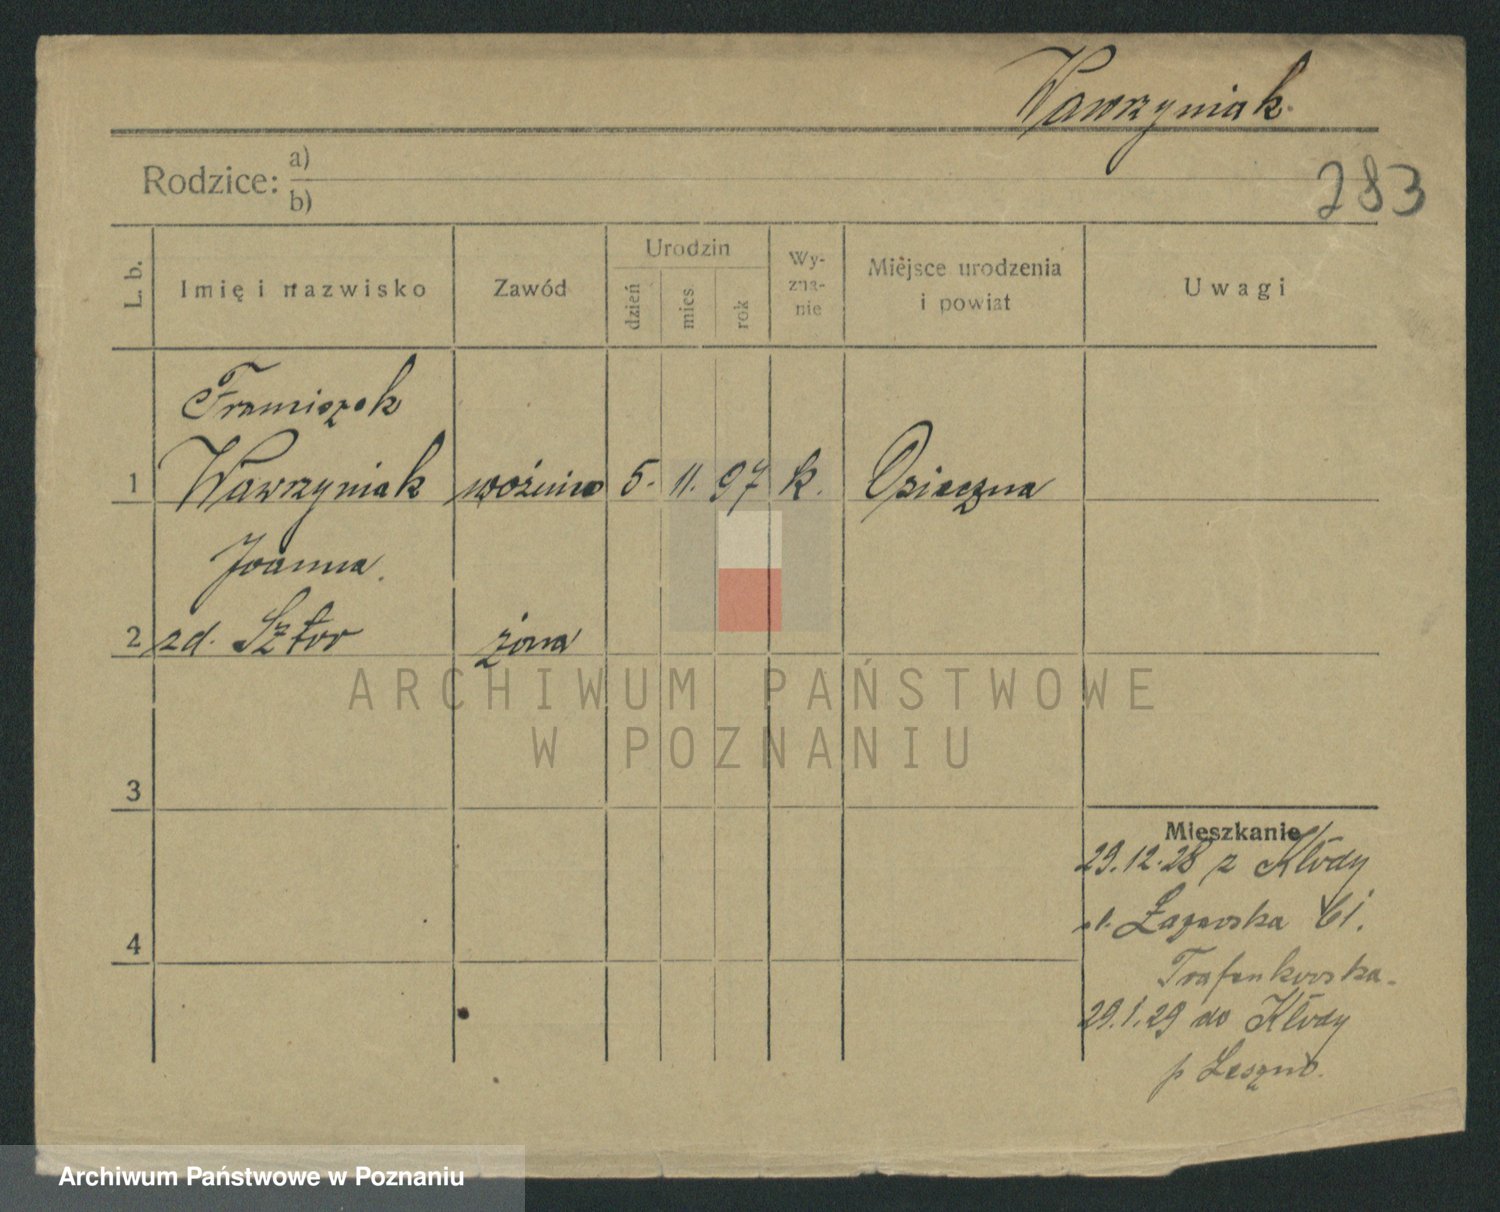 Wawrzyniak.
283
Rodzice: a)
b)
L. b.
Imię i nazwisko
Zawód
Urodzin
dzień
mies
rok
Wy-
zna-
nie
Miejsce urodzenia
i powiat
Uwagi
Franciszek
1 Wawrzyniak woźnica 5. 11. 97 k. Osieczna
Joanna.
2 zd. Sztor żona
3
4
Mieszkanie
29.12.28 z Kłody
ul. Łazarska
29.1.29 do Kłody
p Leszno.
ARCHIWUM PAŃSTWOWE
W POZNANIU
Archiwum Państwowe w Poznaniu